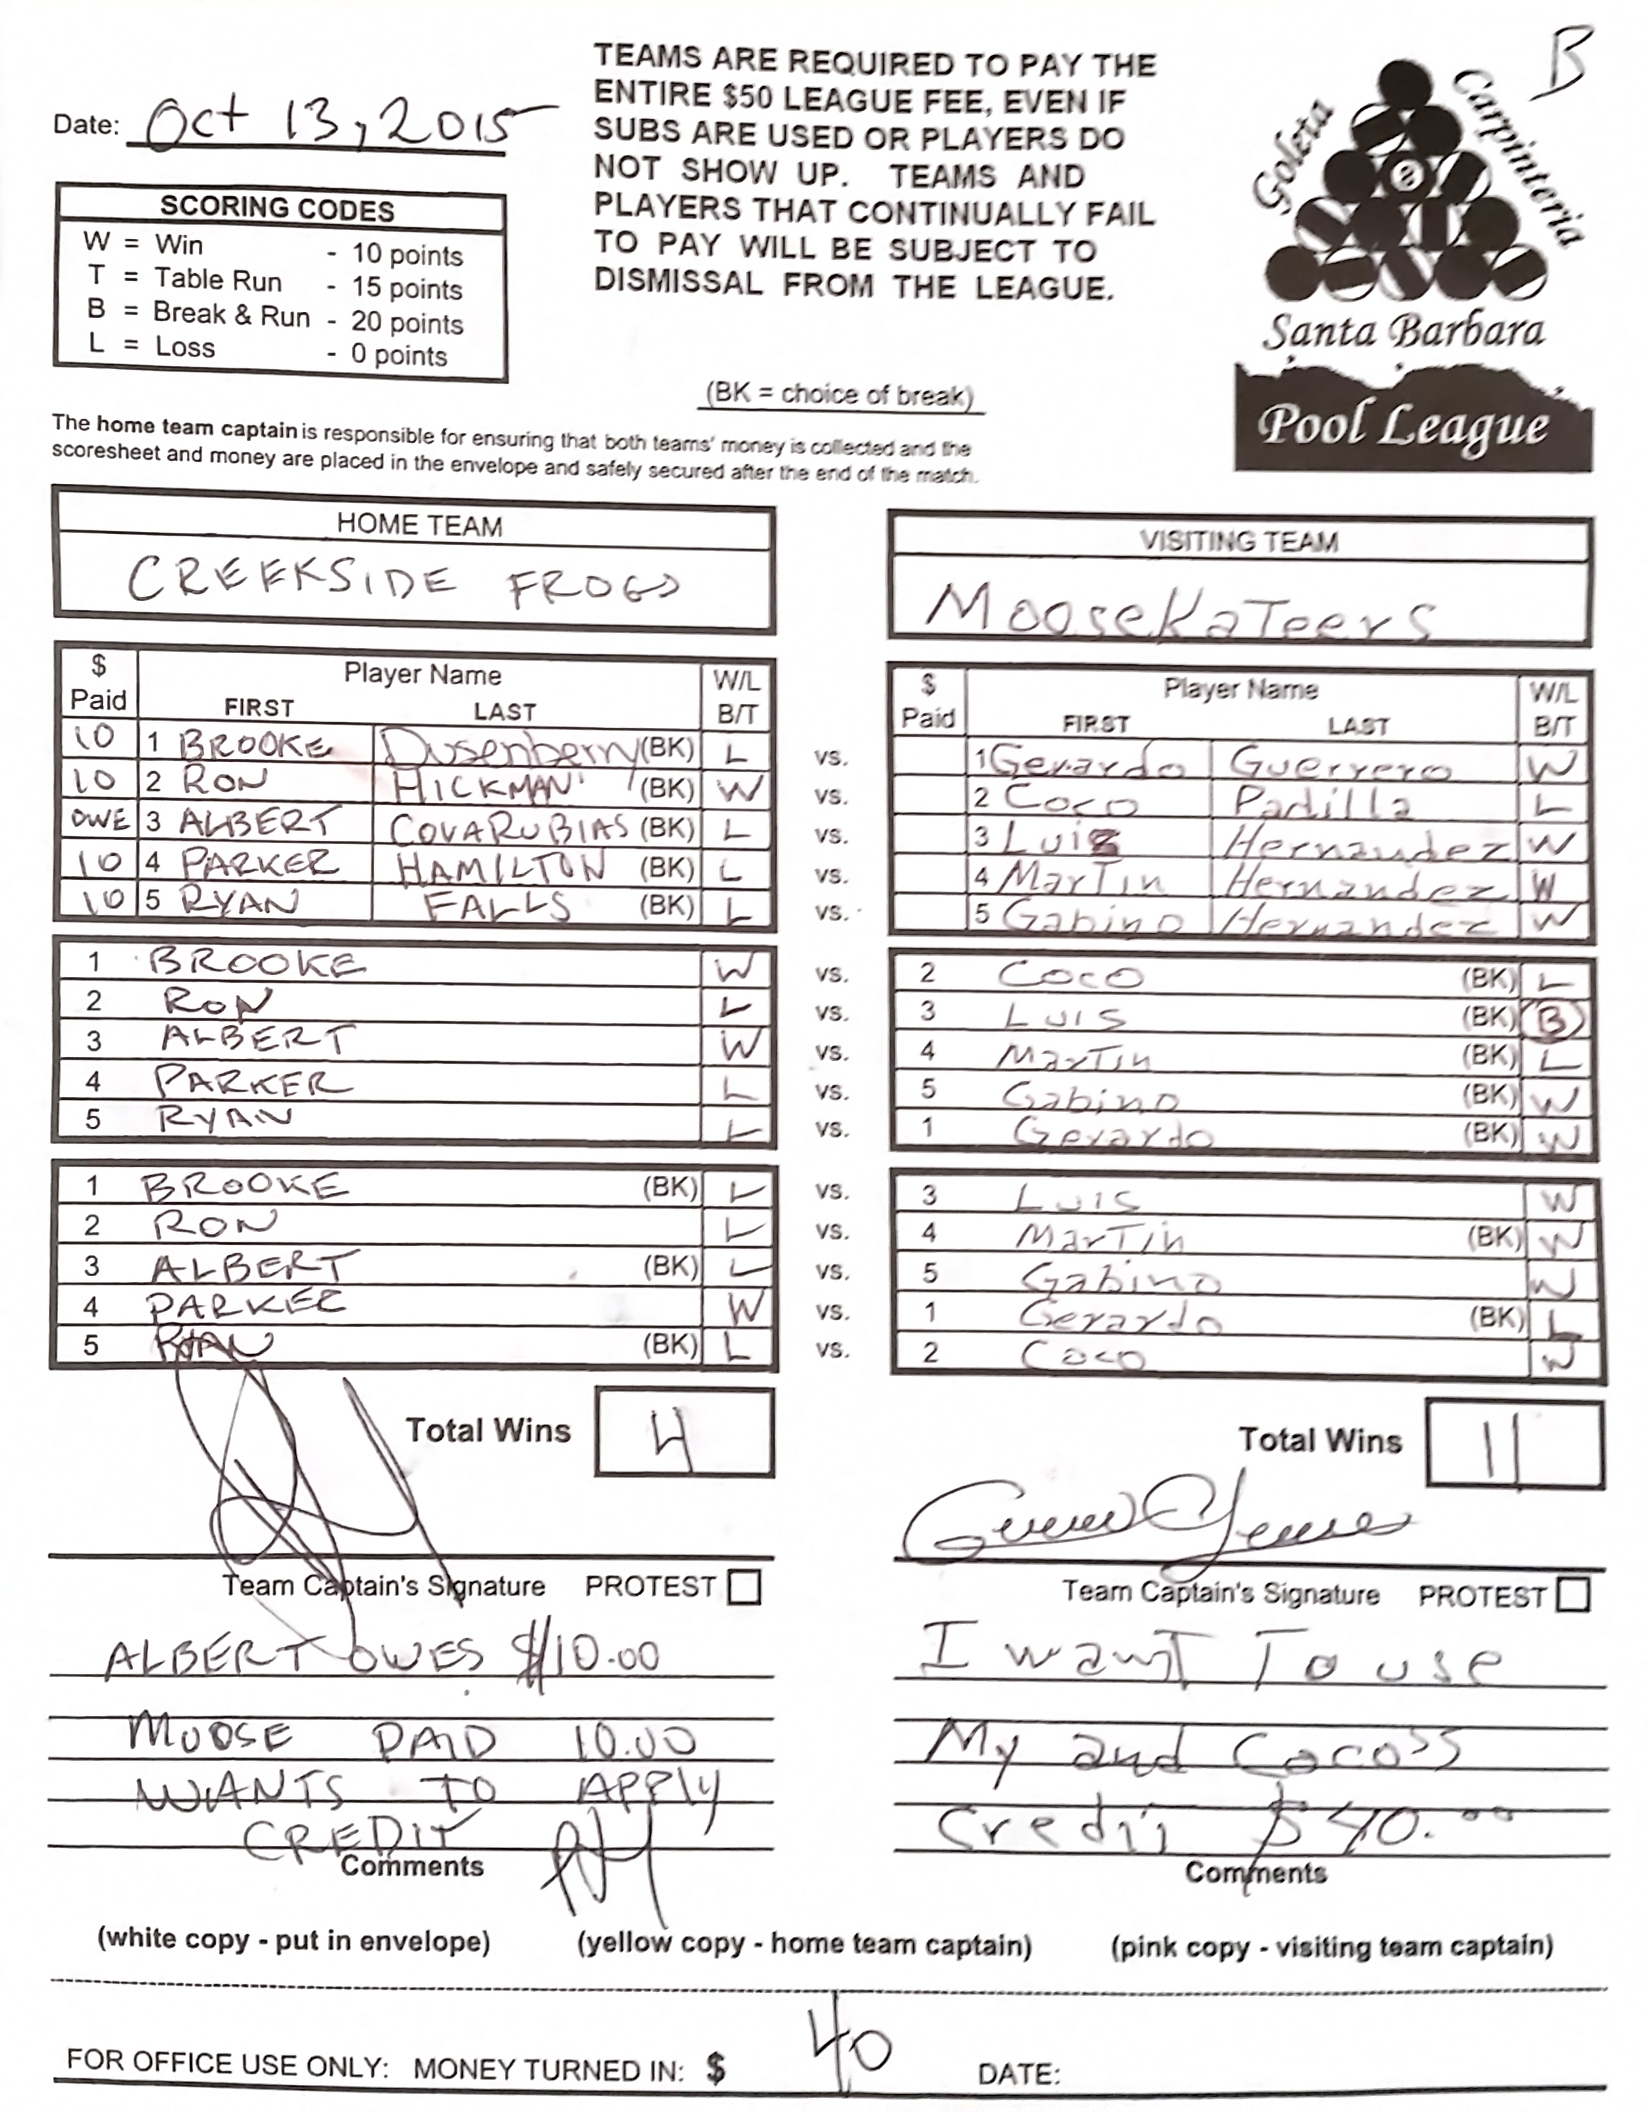 B
Date: Oct 13, 2015
TEAMS ARE REQUIRED TO PAY THE
ENTIRE $50 LEAGUE FEE, EVEN IF
SUBS ARE USED OR PLAYERS DO
NOT SHOW UP. TEAMS AND
PLAYERS THAT CONTINUALLY FAIL
TO PAY WILL BE SUBJECT TO
DISMISSAL FROM THE LEAGUE.
Goleta
Carpinteria
8
Santa Barbara
Pool League
SCORING CODES
W = Win - 10 points
T = Table Run - 15 points
B = Break & Run - 20 points
L = Loss - 0 points
(BK = choice of break)
The home team captain is responsible for ensuring that both teams' money is collected and the
scoresheet and money are placed in the envelope and safely secured after the end of the match.
HOME TEAM
CREEKSIDE FROGS
VISITING TEAM
MooseKaTeers
$ Paid Player Name FIRST LAST W/L B/T
$ Paid Player Name FIRST LAST W/L B/T
10 1 BROOKE Dusenberry (BK) L vs. 1 Gerardo Guerrero W
10 2 RON HICKMAN (BK) W vs. 2 Coco Padilla L
OWE 3 ALBERT COVARUBIAS (BK) L vs. 3 Luis Hernandez W
10 4 PARKER HAMILTON (BK) L vs. 4 MarTin Hernandez W
10 5 RYAN FALLS (BK) L vs. 5 Gabino Hernandez W
1 BROOKE W vs. 2 Coco (BK) L
2 RON L vs. 3 LUIS (BK) B
3 ALBERT W vs. 4 MarTin (BK) L
4 PARKER L vs. 5 Gabino (BK) W
5 RYAN L vs. 1 Gerardo (BK) W
1 BROOKE (BK) L vs. 3 LUIS W
2 RON L vs. 4 MarTin (BK) W
3 ALBERT (BK) L vs. 5 Gabino W
4 PARKER W vs. 1 Gerardo (BK) L
5 RYAN (BK) L vs. 2 Coco W
Total Wins 4
Total Wins 11
Team Captain's Signature PROTEST
Team Captain's Signature PROTEST
ALBERT OWES $10.00
MOOSE PAID 10.00
WANTS TO APPLY
CREDIT
Comments
I wanT To use
My and Coco's
Credit $40.00
Comments
(white copy - put in envelope) (yellow copy - home team captain) (pink copy - visiting team captain)
FOR OFFICE USE ONLY: MONEY TURNED IN: $ 40 DATE: